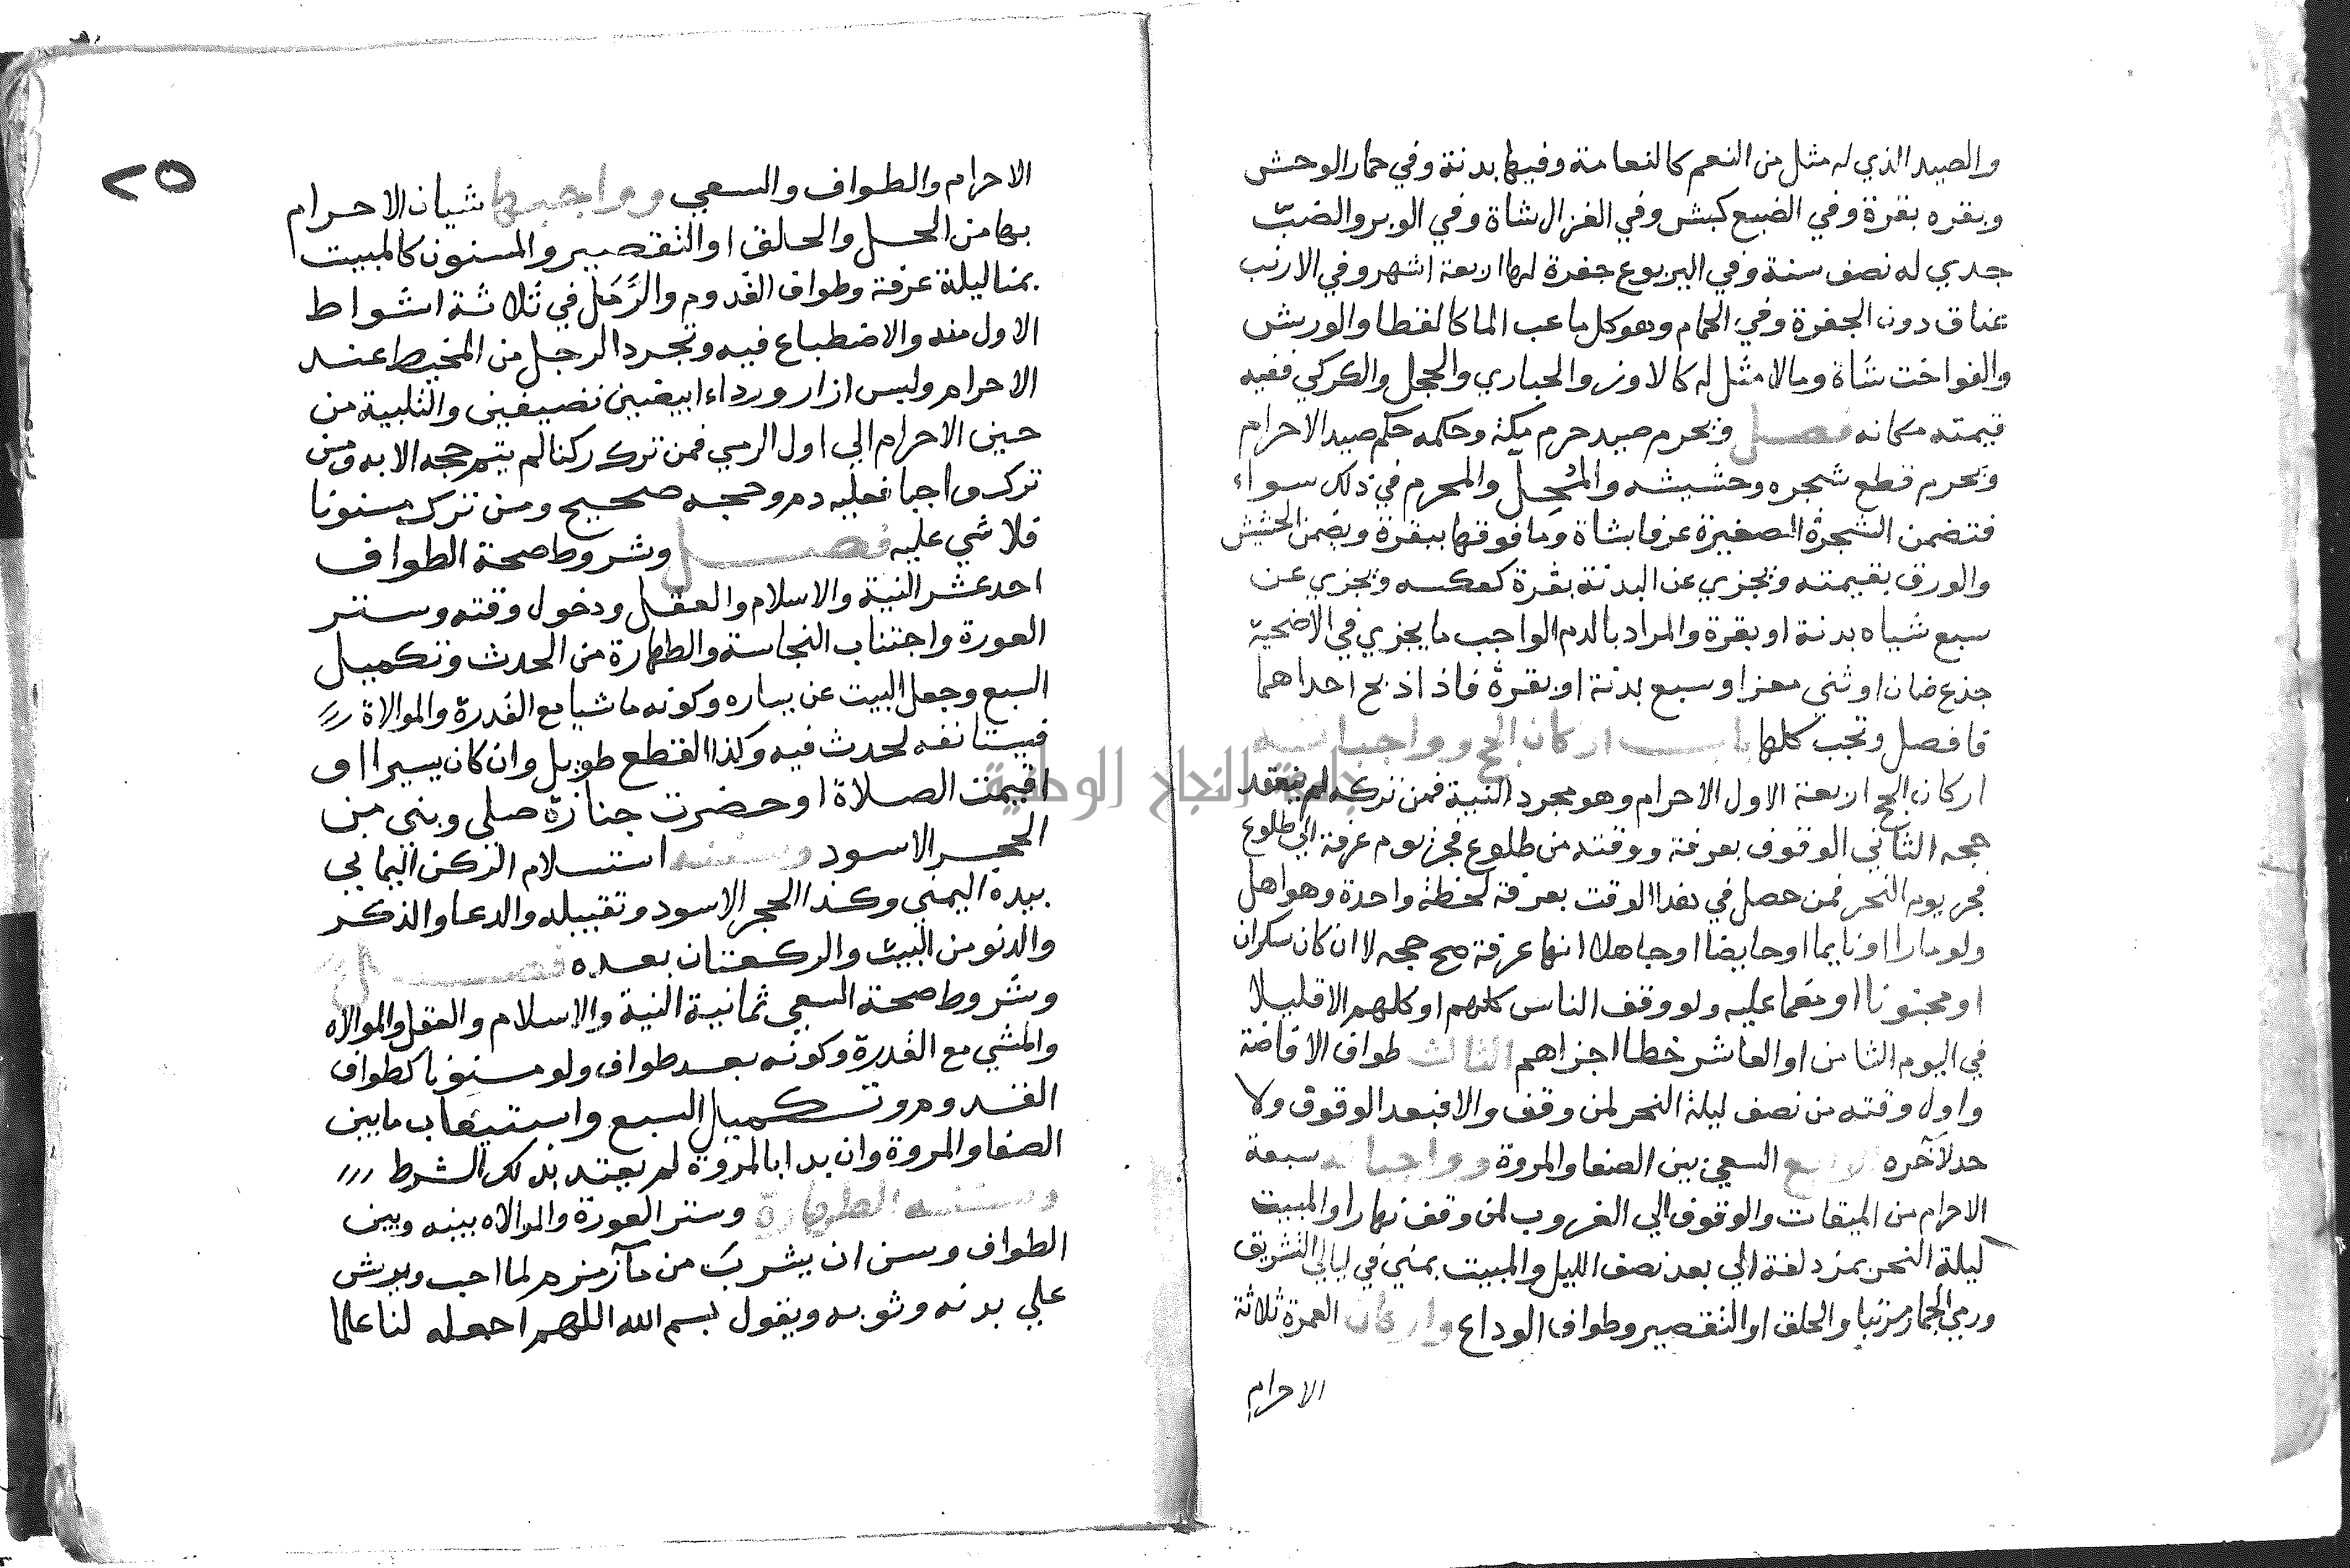 والصيد الذي له مثل من النعم كالنعامة وفيها بدنة وفي حمار الوحش
وبقره بقرة وفي الضبع كبش وفي الغزال شاة وفي الوبر والضب
جدي له نصف سنة وفي اليربوع جفرة لها اربعة اشهر وفي الارنب
عناق دون الجفرة وفي الحمام وهو كل ما عب الما كالقطا والورش
والفواخت شاة وما لا مثل له كالاوز والحباري والحجل والكركي ففيه
قيمته مكانه فصل ويحرم صيد حرم مكة وحكمه حكم صيد الاحرام
ويحرم قطع شجره وحشيشه والمُحِل والمحرم في ذلك سواء
فتضمن الشجرة الصغيرة عرفا بشاة وما فوقها ببقرة ويضمن الحشيش
والورق بقيمته ويجزي عن البدنة بقرة كعكسه ويجزي عن
سبع شياه بدنة او بقرة والمراد بالدم الواجب ما يجزي في الاضحية
جذع ضان او ثني معز او سبع بدنة او بقرة فاذا ذبح احداهما
فافضل وتجب كلها باب اركان الحج وواجباته
اركان الحج اربعة الاول الاحرام وهو مجرد النية فمن تركه لم ينعقد
حجه الثاني الوقوف بعرفة ووقته من طلوع فجر يوم عرفة الي طلوع
فجر يوم النحر فمن حصل في هذا الوقت بعرفة لحظة واحدة وهو اهل
ولو مارا او نايما او حايضا او جاهلا انها عرفة صح حجه لا ان كان سكران
او مجنونا او مغما عليه ولو وقف الناس كلهم او كلهم الا قليلا
في اليوم الثامن او العاشر خطا اجزاهم الثالث طواف الافاضة
واول وقته من نصف ليلة النحر لمن وقف والا فبعد الوقوف ولا
حد لآخره الرابع السعي بين الصفا والمروة وواجباته سبعة
الاحرام من الميقات والوقوف الي الغروب لمن وقف نهارا والمبيت
ليلة النحر بمزدلفة الي بعد نصف الليل والمبيت بمني في ليالي التشريق
ورمي الجمار مرتبا والحلق او التقصير وطواف الوداع واركان العمرة ثلاثة
الاحرام
٢٥
الاحرام والطواف والسعي وواجبها شيان الاحرام
بها من الحل والحلق او التقصير والمسنون كالمبيت
بمنا ليلة عرفة وطواف القدوم والرَّمَل في ثلاثة اشواط
الاول منه والاضطباع فيه وتجرد الرجل من المخيط عند
الاحرام ولبس ازار ورداء ابيضين نضيفين والتلبية من
حين الاحرام الي اول الرمي فمن ترك ركنا لم يتم حجه الا به ومن
ترك واجبا فعليه دم وحجه صحيح ومن ترك مسنونا
فلا شي عليه فصل وشروط صحة الطواف
احد عشر النية والاسلام والعقل ودخول وقته وستر
العورة واجتناب النجاسة والطهارة من الحدث وتكميل
السبع وجعل البيت عن يساره وكونه ماشيا مع القدرة والموالاة
فيستانفه لحدث فيه وكذا القطع طويل وان كان يسيرا او
اقيمت الصلاة او حضرت جنازة صلي وبني من
الحجر الاسود وسننه استلام الركن اليماني
بيده اليمني وكذا الحجر الاسود وتقبيله والدعا والذكر
والدنو من البيت والركعتان بعده فصل
وشروط صحة السعي ثمانية النية والاسلام والعقل والموالاه
والمشي مع القدرة وكونه بعد طواف ولو مسنونا كطواف
القدوم وتكميل السبع واستيعاب ما بين
الصفا والمروة وان بدا بالمروة لم يعتد بذلك الشرط
وسننه الطهارة وستر العورة والموالاه بينه وبين
الطواف وسن ان يشرب من مآ زمزم لما احب ويرش
علي بدنه وثوبه ويقول بسم الله اللهم اجعله لنا علما
جامعة النجاح الوطنية